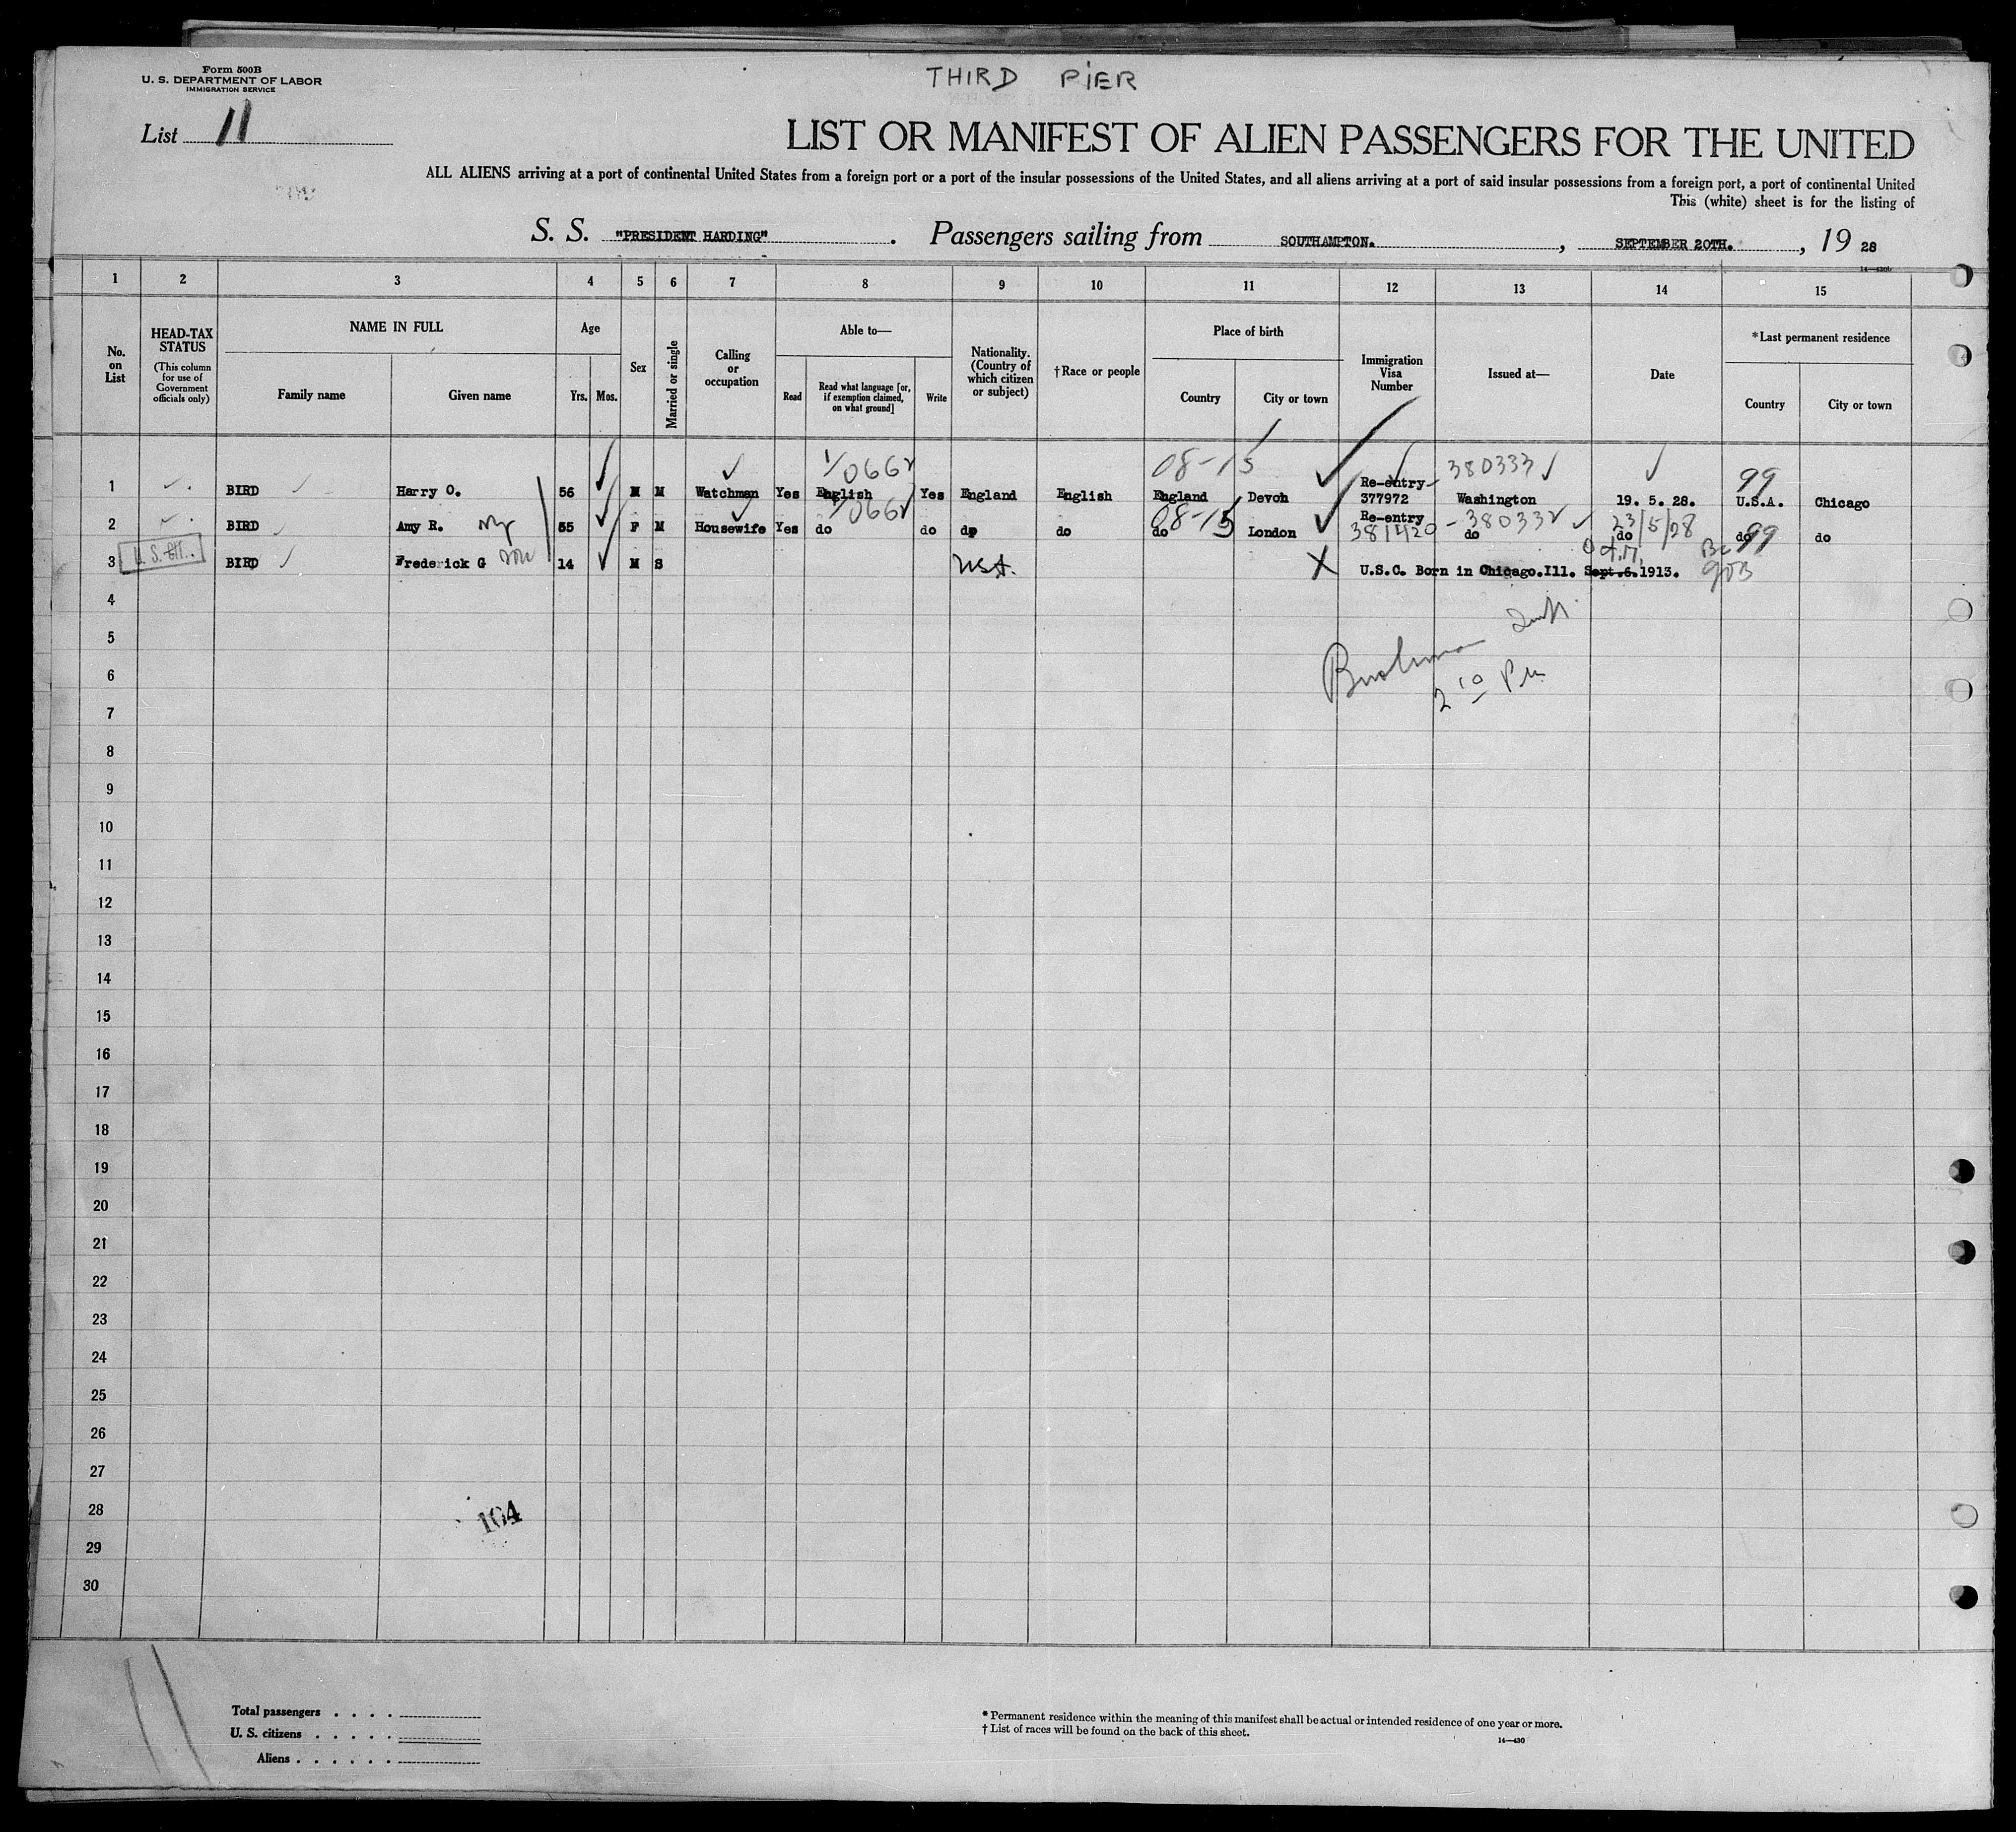 THIRD PIER
Form 500B
U. S. DEPARTMENT OF LABOR
IMMIGRATION SERVICE
List 11
LIST OR MANIFEST OF ALIEN PASSENGERS FOR THE UNITED
ALL ALIENS arriving at a port of continental United States from a foreign port or a port of the insular possessions of the United States, and all aliens arriving at a port of said insular possessions from a foreign port, a port of continental United
This (white) sheet is for the listing of
S. S. "PRESIDENT HARDING". Passengers sailing from SOUTHAMPTON., SEPTEMBER 20TH., 19 28
1 2 3 4 5 6 7 8 9 10 11 12 13 14 15
No. on List
HEAD-TAX STATUS
(This column for use of Government officials only)
NAME IN FULL
Family name
Given name
Age
Yrs. Mos.
Sex
Married or single
Calling or occupation
Able to—
Read
Read what language [or, if exemption claimed, on what ground]
Write
Nationality. (Country of which citizen or subject)
†Race or people
Place of birth
Country
City or town
Immigration Visa Number
Issued at—
Date
*Last permanent residence
Country
City or town
1/0662 08-15 380333 99
Re-entry
1 BIRD Harry O. 56 M M Watchman Yes English Yes England English England Devon 377972 Washington 19. 5. 28. U.S.A. Chicago
1/0662 08-15 Re-entry 380332 23/5/28 99
2 BIRD Amy R. 55 F M Housewife Yes do do do do do London 381420 do do do do
3 U.S. BIRD Frederick G 14 M S USA. X U.S.C. Born in Chicago.Ill. Sept.6.1913.
4
5
6
7
8
9
10
11
12
13
14
15
16
17
18
19
20
21
22
23
24
25
26
27
28
29
30
164
11
Total passengers . . . .
U. S. citizens . . . . .
Aliens . . . . . .
* Permanent residence within the meaning of this manifest shall be actual or intended residence of one year or more.
† List of races will be found on the back of this sheet.
14—430